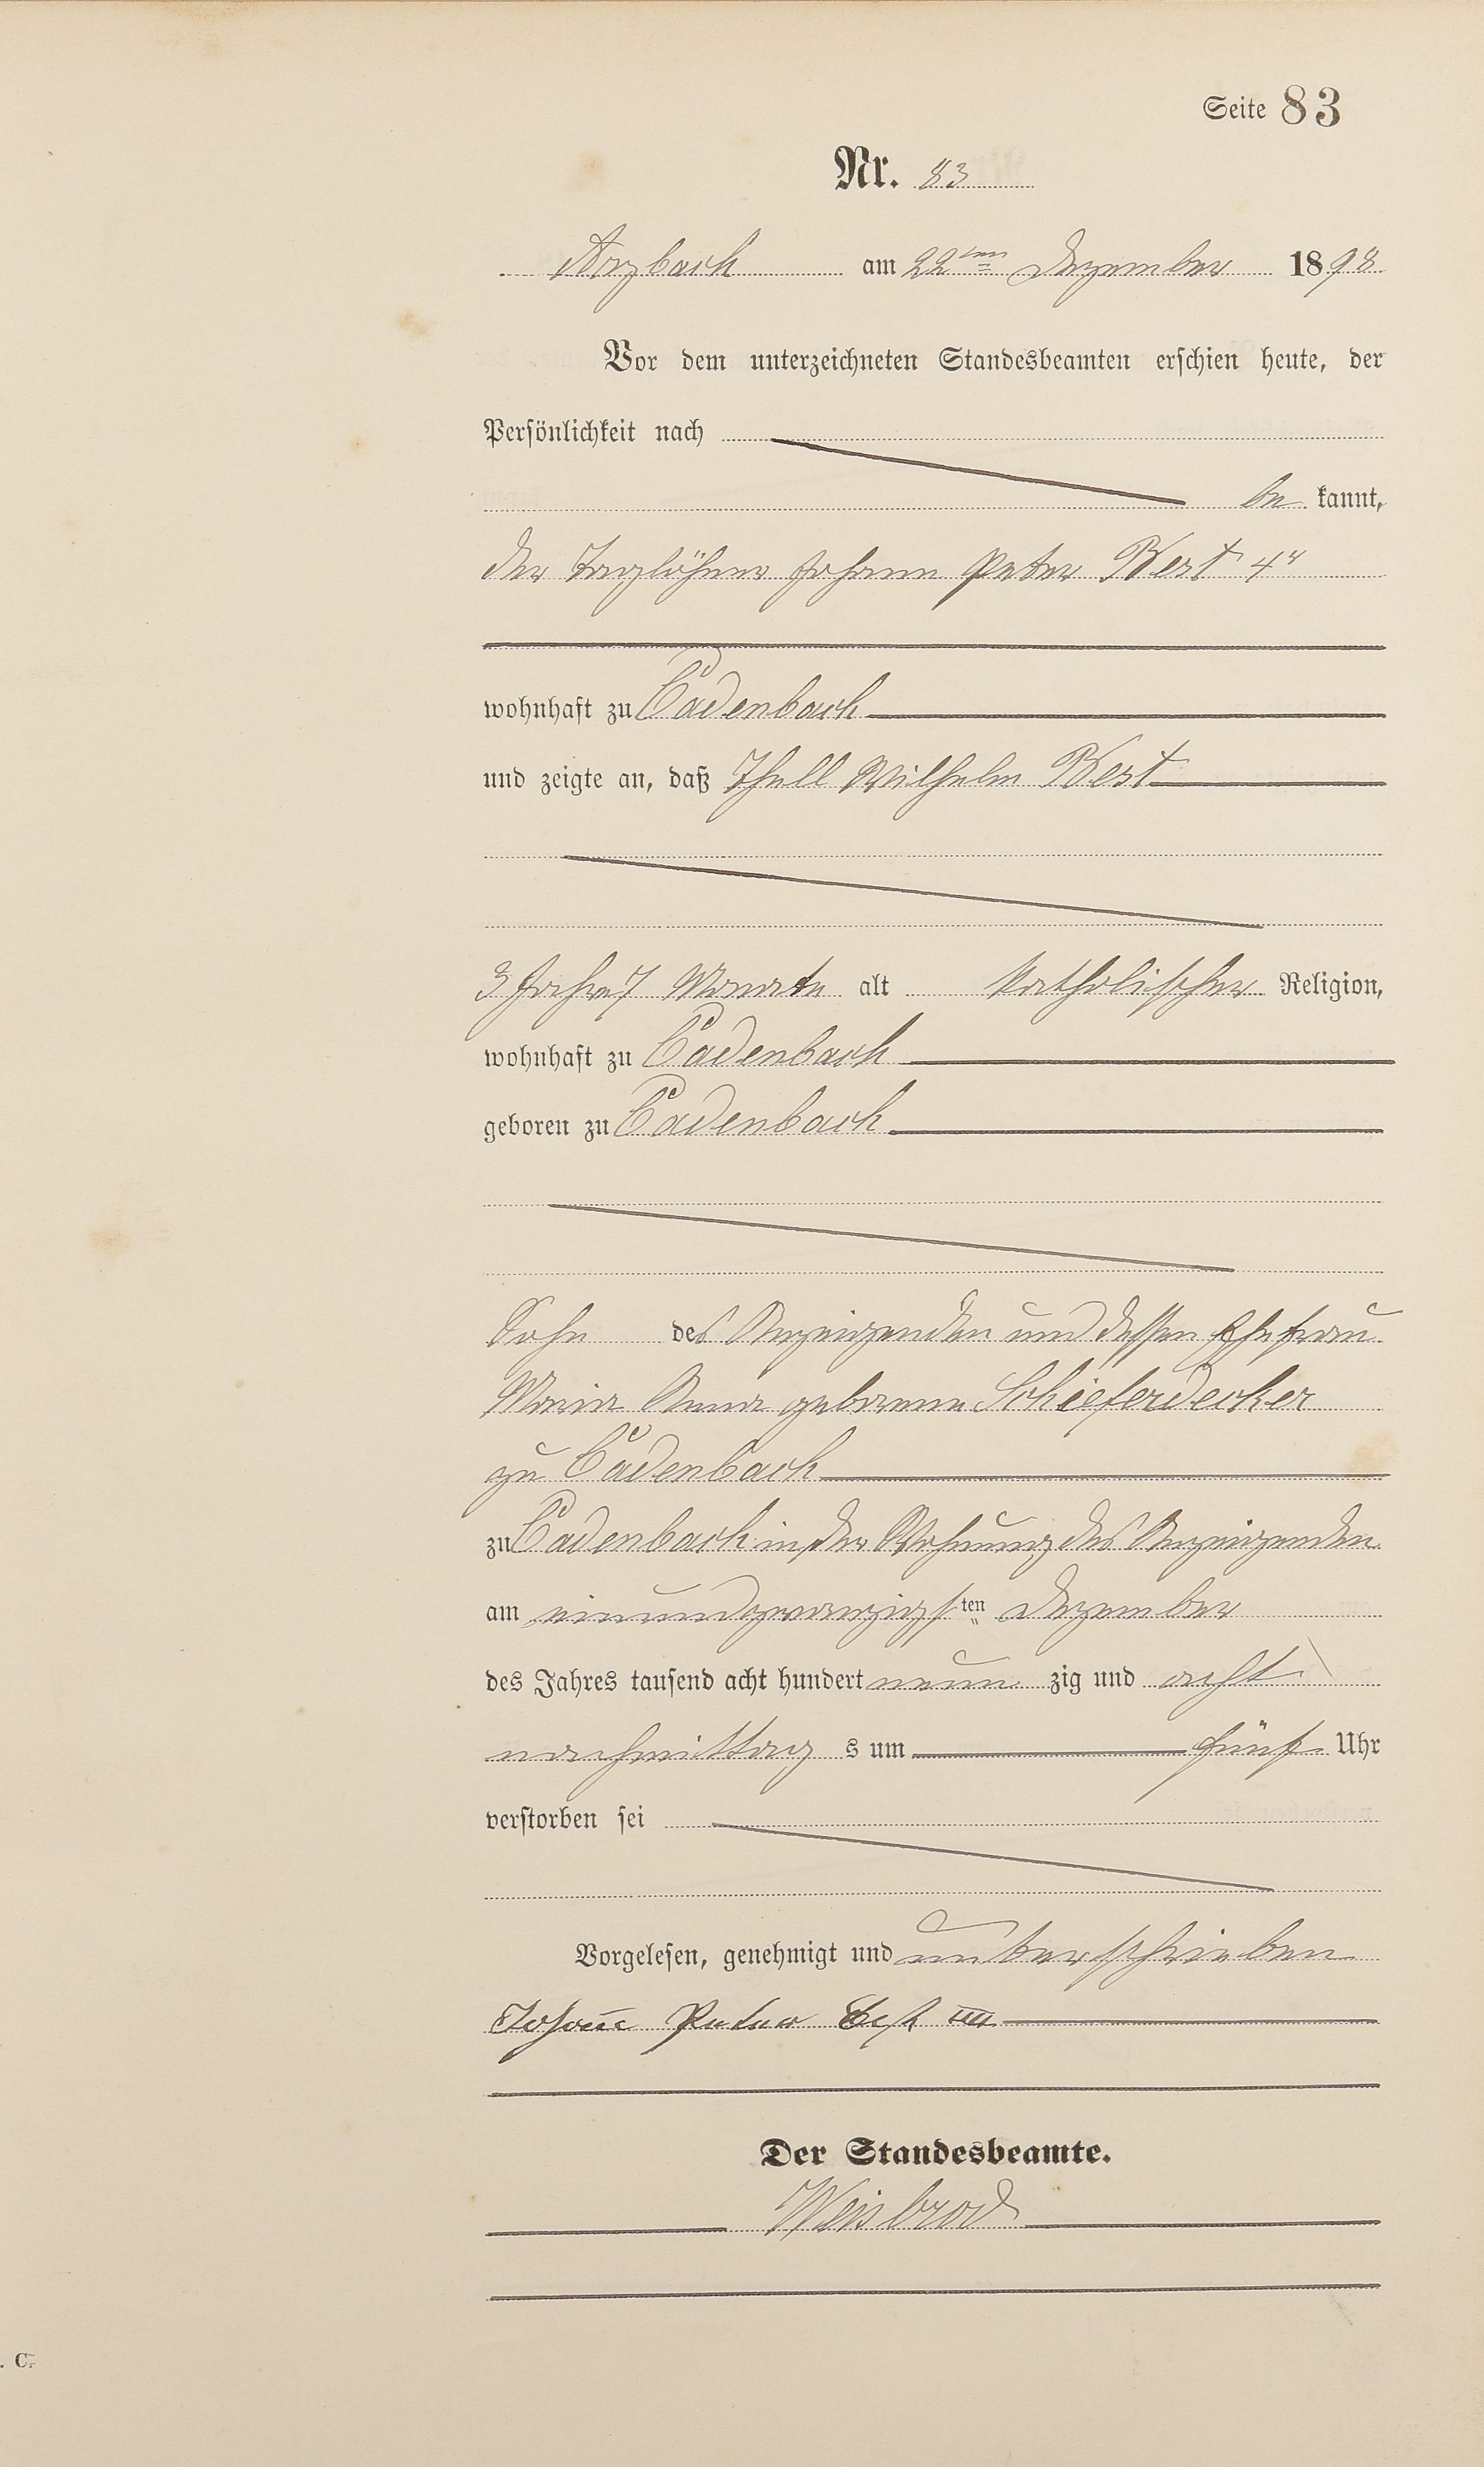 Seite 83
Nr. 83
Arzbach am 22ten Dezember 1898
Vor dem unterzeichneten Standesbeamten erschien heute, der
Persönlichkeit nach
be kannt,
der Taglöhner Johann Peter Best 4r
wohnhaft zu Cadenbach
und zeigte an, daß Wilhelm Best
3 Jahre 7 Monate alt katholischer Religion,
wohnhaft zu Cadenbach
geboren zu Cadenbach
Sohn des Anzeigenden und dessen Ehefrau
Maria Anna geborene Schieferdecker
zu Cadenbach
zu Cadenbach in der Wohnung des Anzeigenden
am einundzwanzigsten Dezember
des Jahres tausend acht hundert neun zig und acht
nachmittag s um fünf Uhr
verstorben sei
Vorgelesen, genehmigt und unterschrieben
Johann Peter Best IIII
Der Standesbeamte.
Weisbrod
. C.